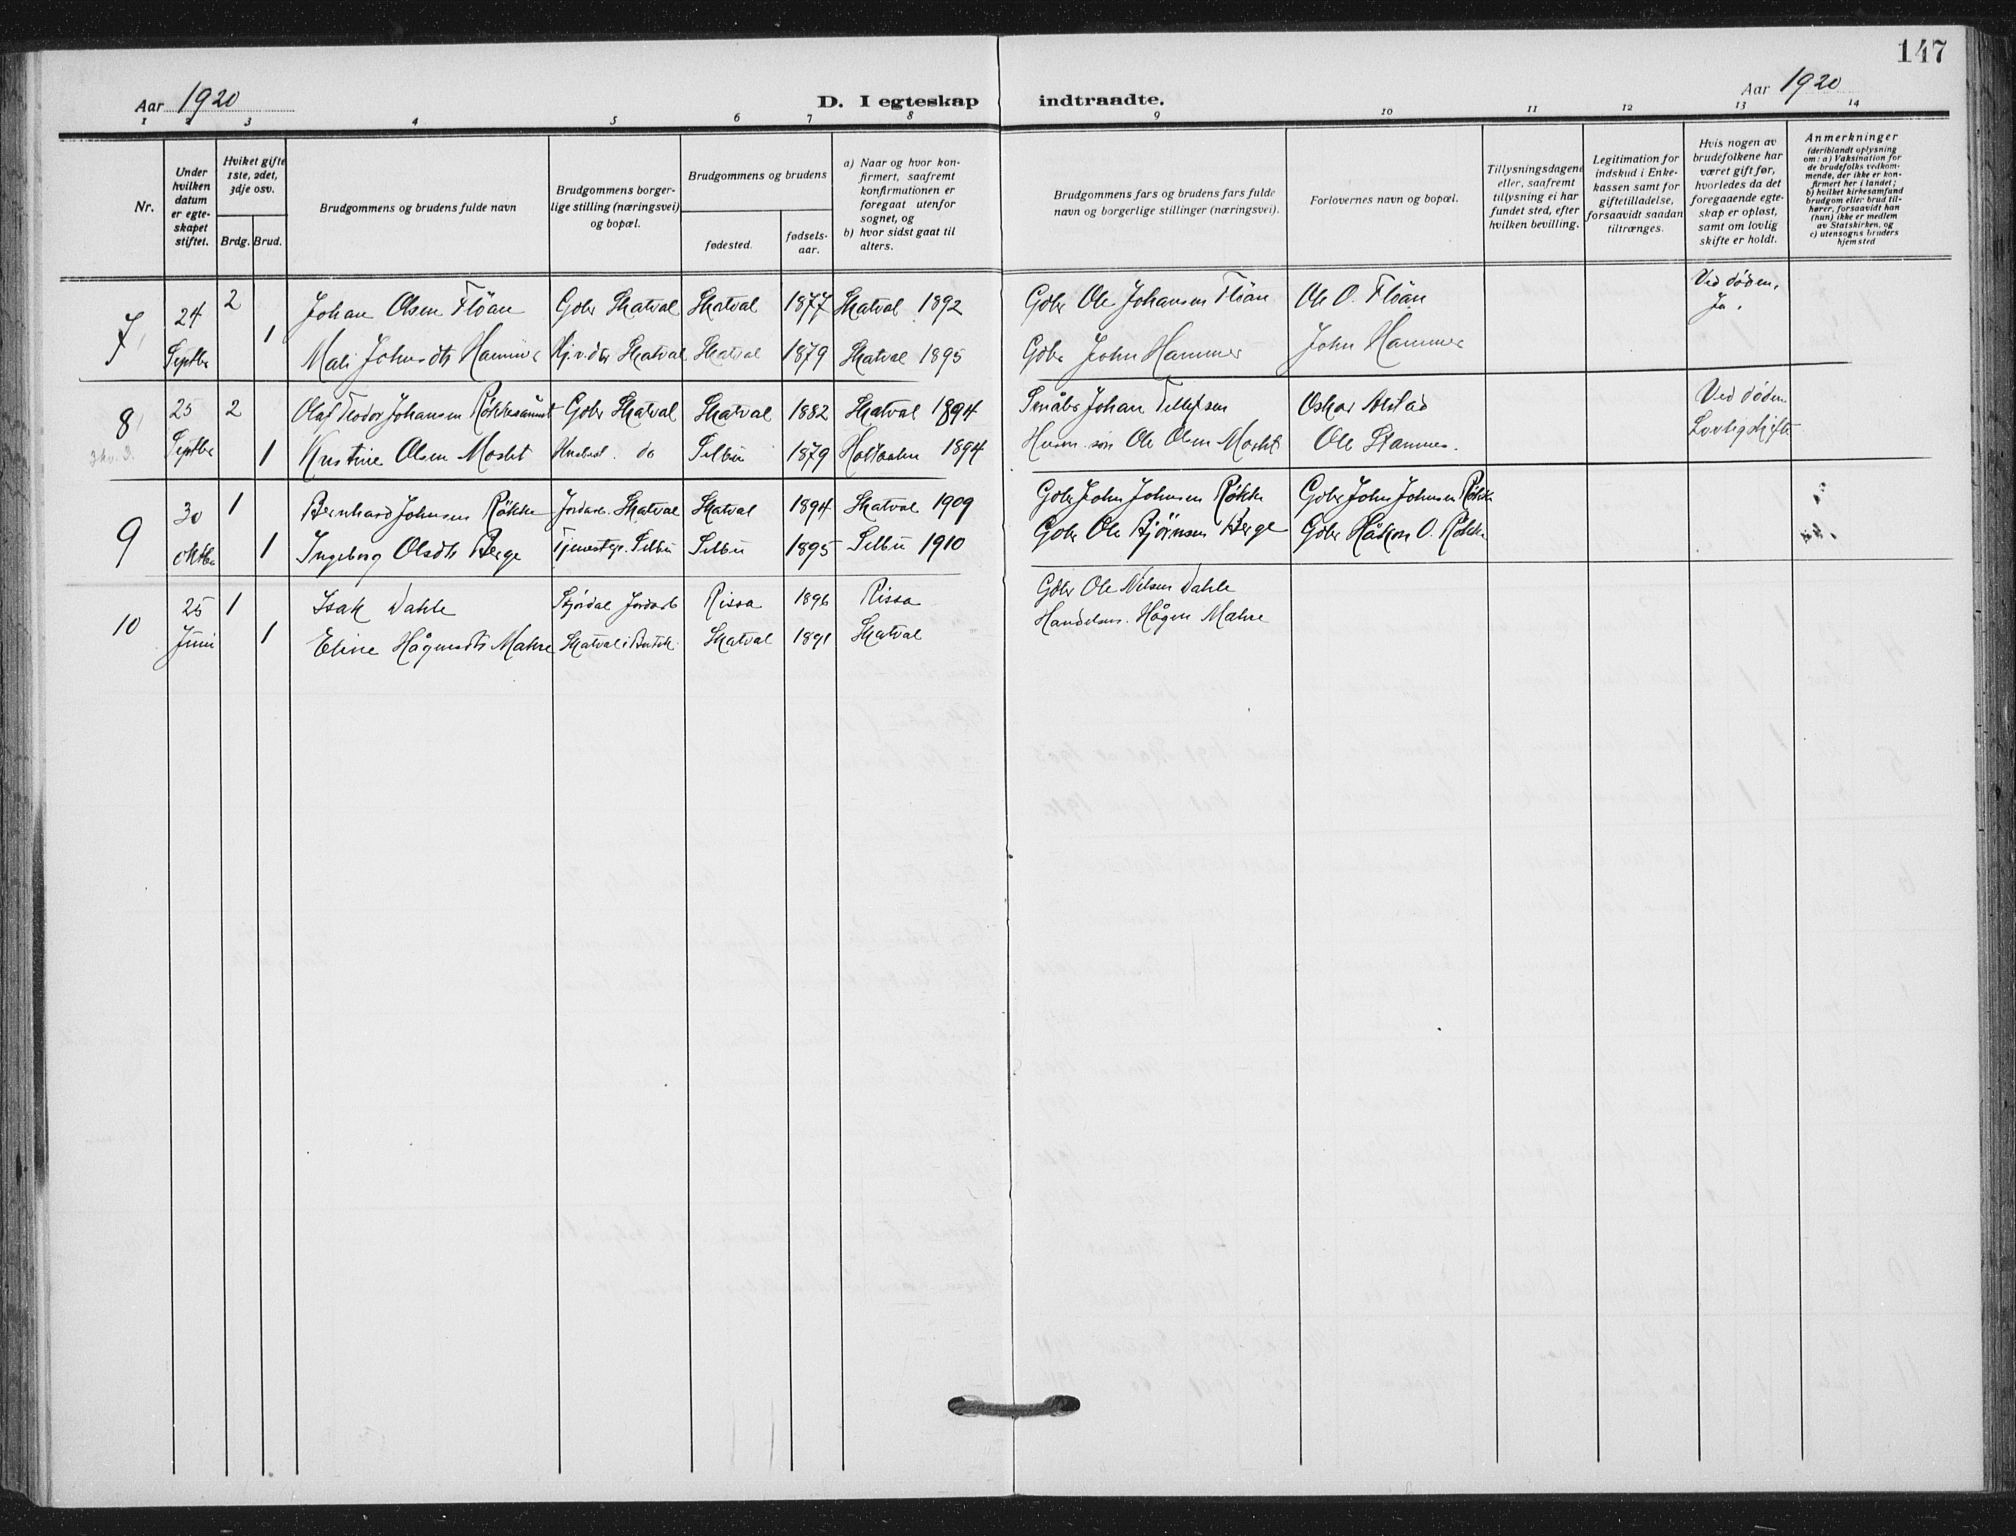 147
Aar 1920
D. I egteskap indtraadte.
Aar 1920
1 2 3 4 5 6 7 8 9 10 11 12 13 14
Nr.
Under hvilken datum er egteskapet stiftet.
Hvilket gifte 1ste, 2det, 3dje osv.
Brdg. Brud.
Brudgommens og brudens fulde navn
Brudgommens borgerlige stilling (næringsvei) og bopæl.
Brudgommens og brudens
fødested.
fødselsaar.
a) Naar og hvor konfirmert, saafremt konfirmationen er foregaat utenfor sognet, og
b) hvor sidst gaat til alters.
Brudgommens fars og brudens fars fulde navn og borgerlige stillinger (næringsvei).
Forlovernes navn og bopæl.
Tillysningsdagene eller, saafremt tillysning ei har fundet sted, efter hvilken bevilling.
Legitimation for indskud i Enkekassen samt for giftetilladelse, forsaavidt saadan tiltrænges.
Hvis nogen av brudefolkene har været gift før, hvorledes da det foregaaende egteskap er opløst, samt om lovlig skifte er holdt.
Anmerkninger (deriblandt oplysning om: a) Vaksination for de brudefolks vedkommende, der ikke er konfirmert her i landet; b) hvilket kirkesamfund brudgom eller brud tilhører, forsaavidt han (hun) ikke er medlem av Statskirken, og c) utensogns bruders hjemsted
7 24 2 Johan Olsen Flöan Gbr Skatval Skatval 1877 Skatval 1892 Gbr Ole Johansen Flöan Ole O. Flöan Ved døden,
Ja.
Septbr 1 Mali Johnsdtr Hammer Skatval Skatval 1879 Skatval 1895 Gbr John Hammer John Hammer
8 25 2 Olaf Teodor Johansen Gbr Skatval Skatval 1882 Skatval 1894 Småbr Johan Oskar Ved døden
Septbr 1 Kristine Olsen Moslet do Selbu 1879 Holtaalen 1894 Ole Olsen Moslet Ole Stamnes. Lovlig skifte
9 30 1 Bernhard Johnsen Røkke Skatval Skatval 1894 Skatval 1909 Gbr John Johnsen Røkke Gbr John Johnsen Røkke
oktbr 1 Ingeborg Olsdtr Berge Selbu Selbu 1895 Selbu 1910 Gbr Ole Bjørnsen Berge Gbr Håkon O. Røkke
10 25 1 Isak Dahle Stjørdal Rissa 1896 Rissa Gbr Ole Nilsen Dahle
Juni 1 Eline Hågensdtr Mæhre Skatval Skatval 1891 Skatval Handelsm. Hågen Mæhre